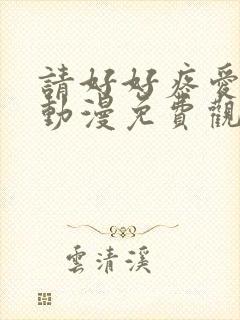 請好好疼愛
動漫免費觀
雲清溪